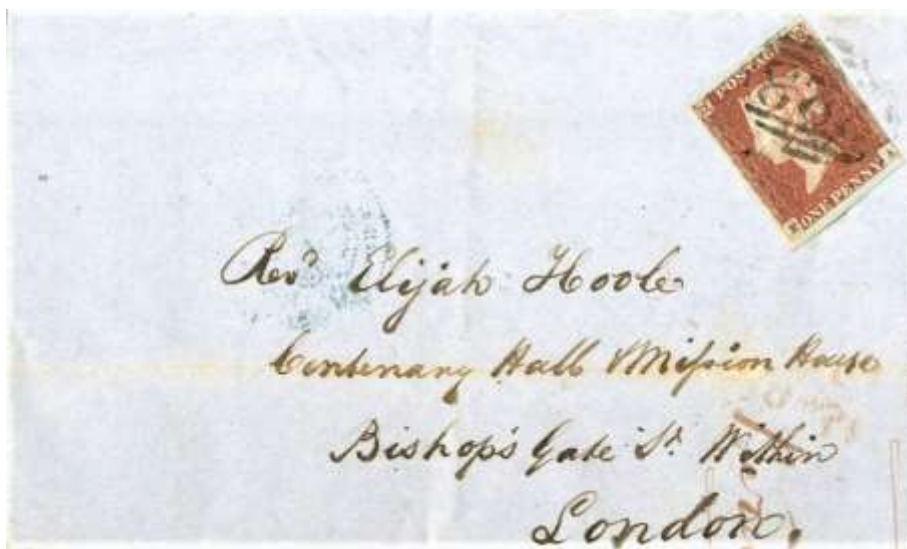 POSTAGE
ONE PENNY
Revd Elijah Hoole
Centenary Hall & Mission House
Bishop's Gate St. Within
London.